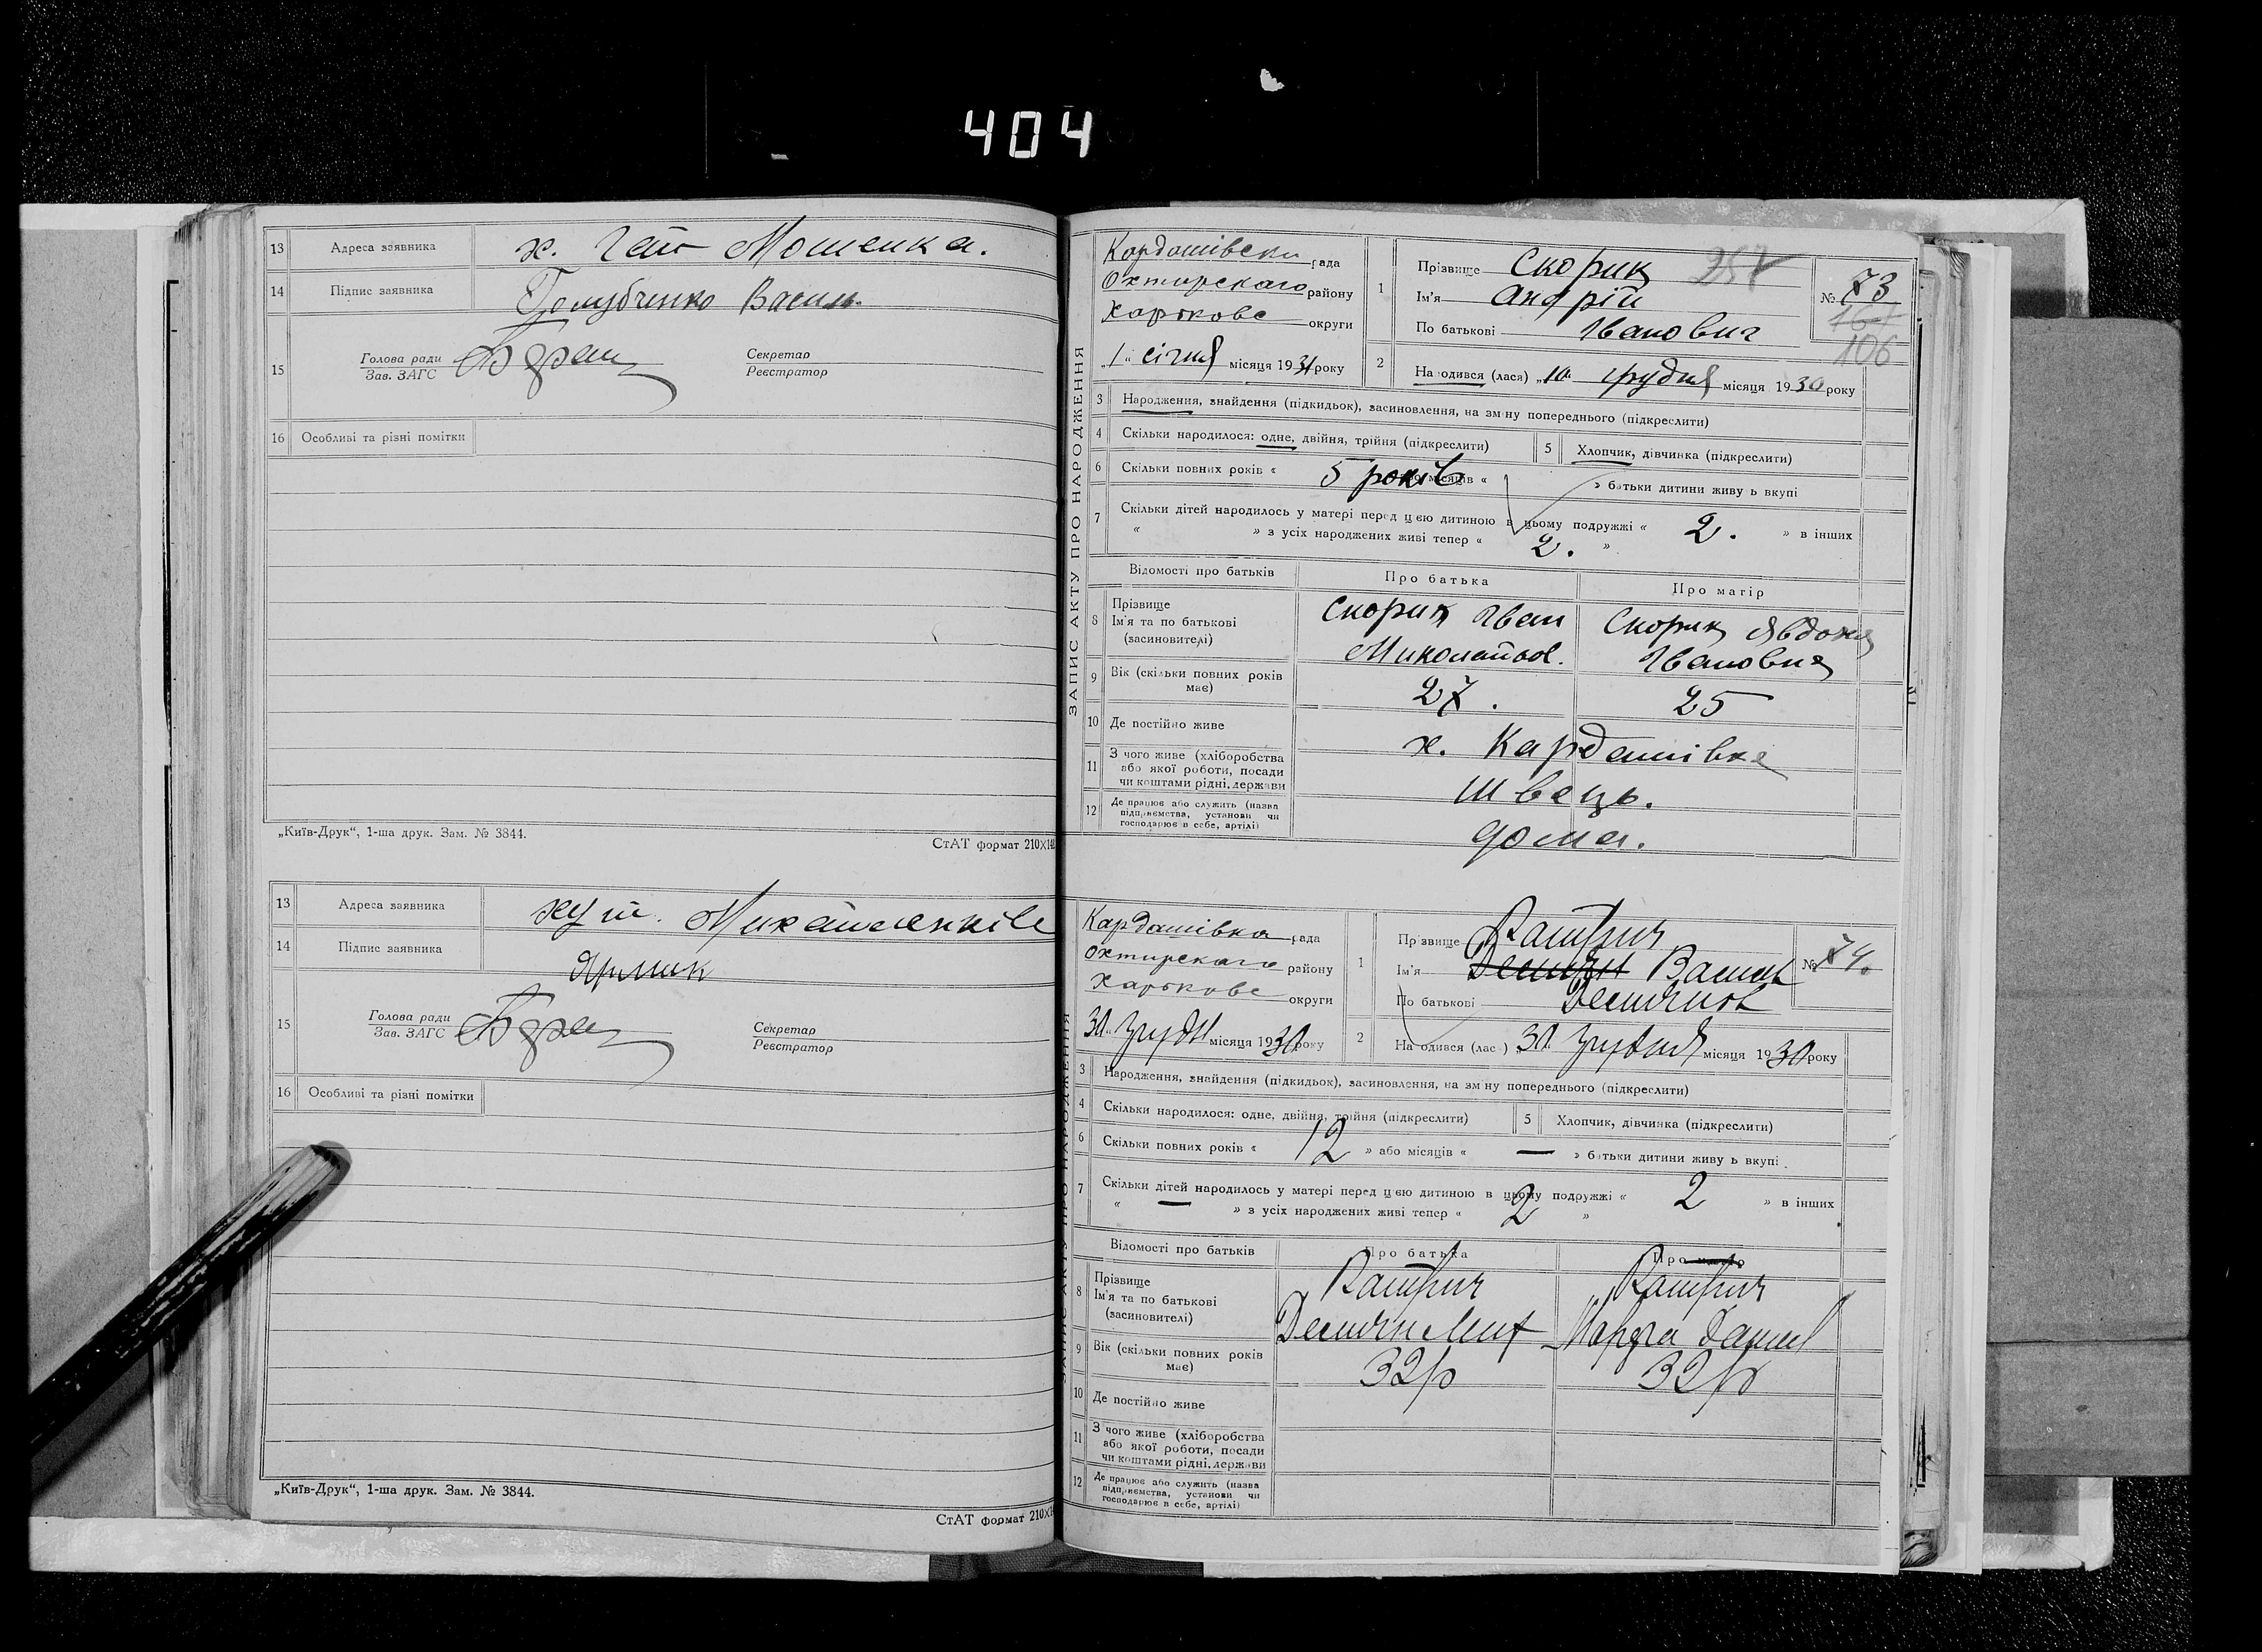 404
13 Адреса заявника х. Гай Мошенка.
14 Підпис заявника Голубченко Василь
15 Голова ради Секретар
Зав. ЗАГС Реєстратор
16 Особливі та різні помітки
„Київ-Друк“, 1-ша друк. Зам. № 3844.
СтАТ формат 210×14
13 Адреса заявника хут.
14 Підпис заявника Ярмик
15 Голова ради Секретар
Зав. ЗАГС Реєстратор
16 Особливі та різні помітки
„Київ-Друк“, 1-ша друк. Зам. № 3844.
СтАТ формат 210×1
ЗАПИС АКТУ ПРО НАРОДЖЕННЯ
Кардашівськи рада
Охтирскаго району
Харькове округи
„1“ січня місяця 1931 року
1 Прізвище Скорик 257
Ім'я Андрій
По батькові Іванович
№ 73
106
2 Народився (лася) „10“ грудня місяця 1930 року
3 Народження, знайдення (підкидьок), засиновлення, на зміну попереднього (підкреслити)
4 Скільки народилося: одне, двійня, трійня (підкреслити) 5 Хлопчик, дівчинка (підкреслити)
6 Скільки повних років « 5 років місяців « » батьки дитини живуть вкупі
7 Скільки дітей народилось у матері перед цією дитиною в цьому подружжі « 2. » в інших
« » з усіх народжених живі тепер « 2. »
Відомості про батьків Про батька Про матір
8 Прізвище Ім'я та по батькові (засиновителі) Скорик Іван Миколайов. Скорик Явдоки Івановна
9 Вік (скільки повних років має) 27. 25
10 Де постійно живе х. Кардашівка
11 З чого живе (хліборобства або якої роботи, посади чи коштами рідні, держави швець.
12 Де працює або служить (назва підприємства, установи чи господарює в себе, артілі) дома.
ЗАПИС АКТУ ПРО НАРОДЖЕННЯ
Кардашівка рада
Охтирскаго району
Харькове округи
30 грудн місяця 1930 року
1 Прізвище
Ім'я Василь
По батькові
№ 74.
2 Народився (лася) 30 грудня місяця 1930 року
3 Народження, знайдення (підкидьок), засиновлення, на зміну попереднього (підкреслити)
4 Скільки народилося: одне, двійня, трійня (підкреслити) 5 Хлопчик, дівчинка (підкреслити)
6 Скільки повних років « 12 » або місяців « — » батьки дитини живуть вкупі
7 Скільки дітей народилось у матері перед цією дитиною в цьому подружжі « 2 » в інших
« — » з усіх народжених живі тепер « 2 »
Відомості про батьків Про батька Про матір
8 Прізвище Ім'я та по батькові (засиновителі)
9 Вік (скільки повних років має) 32 р 32 р
10 Де постійно живе
11 З чого живе (хліборобства або якої роботи, посади чи коштами рідні, держави
12 Де працює або служить (назва підприємства, установи чи господарює в себе, артілі)